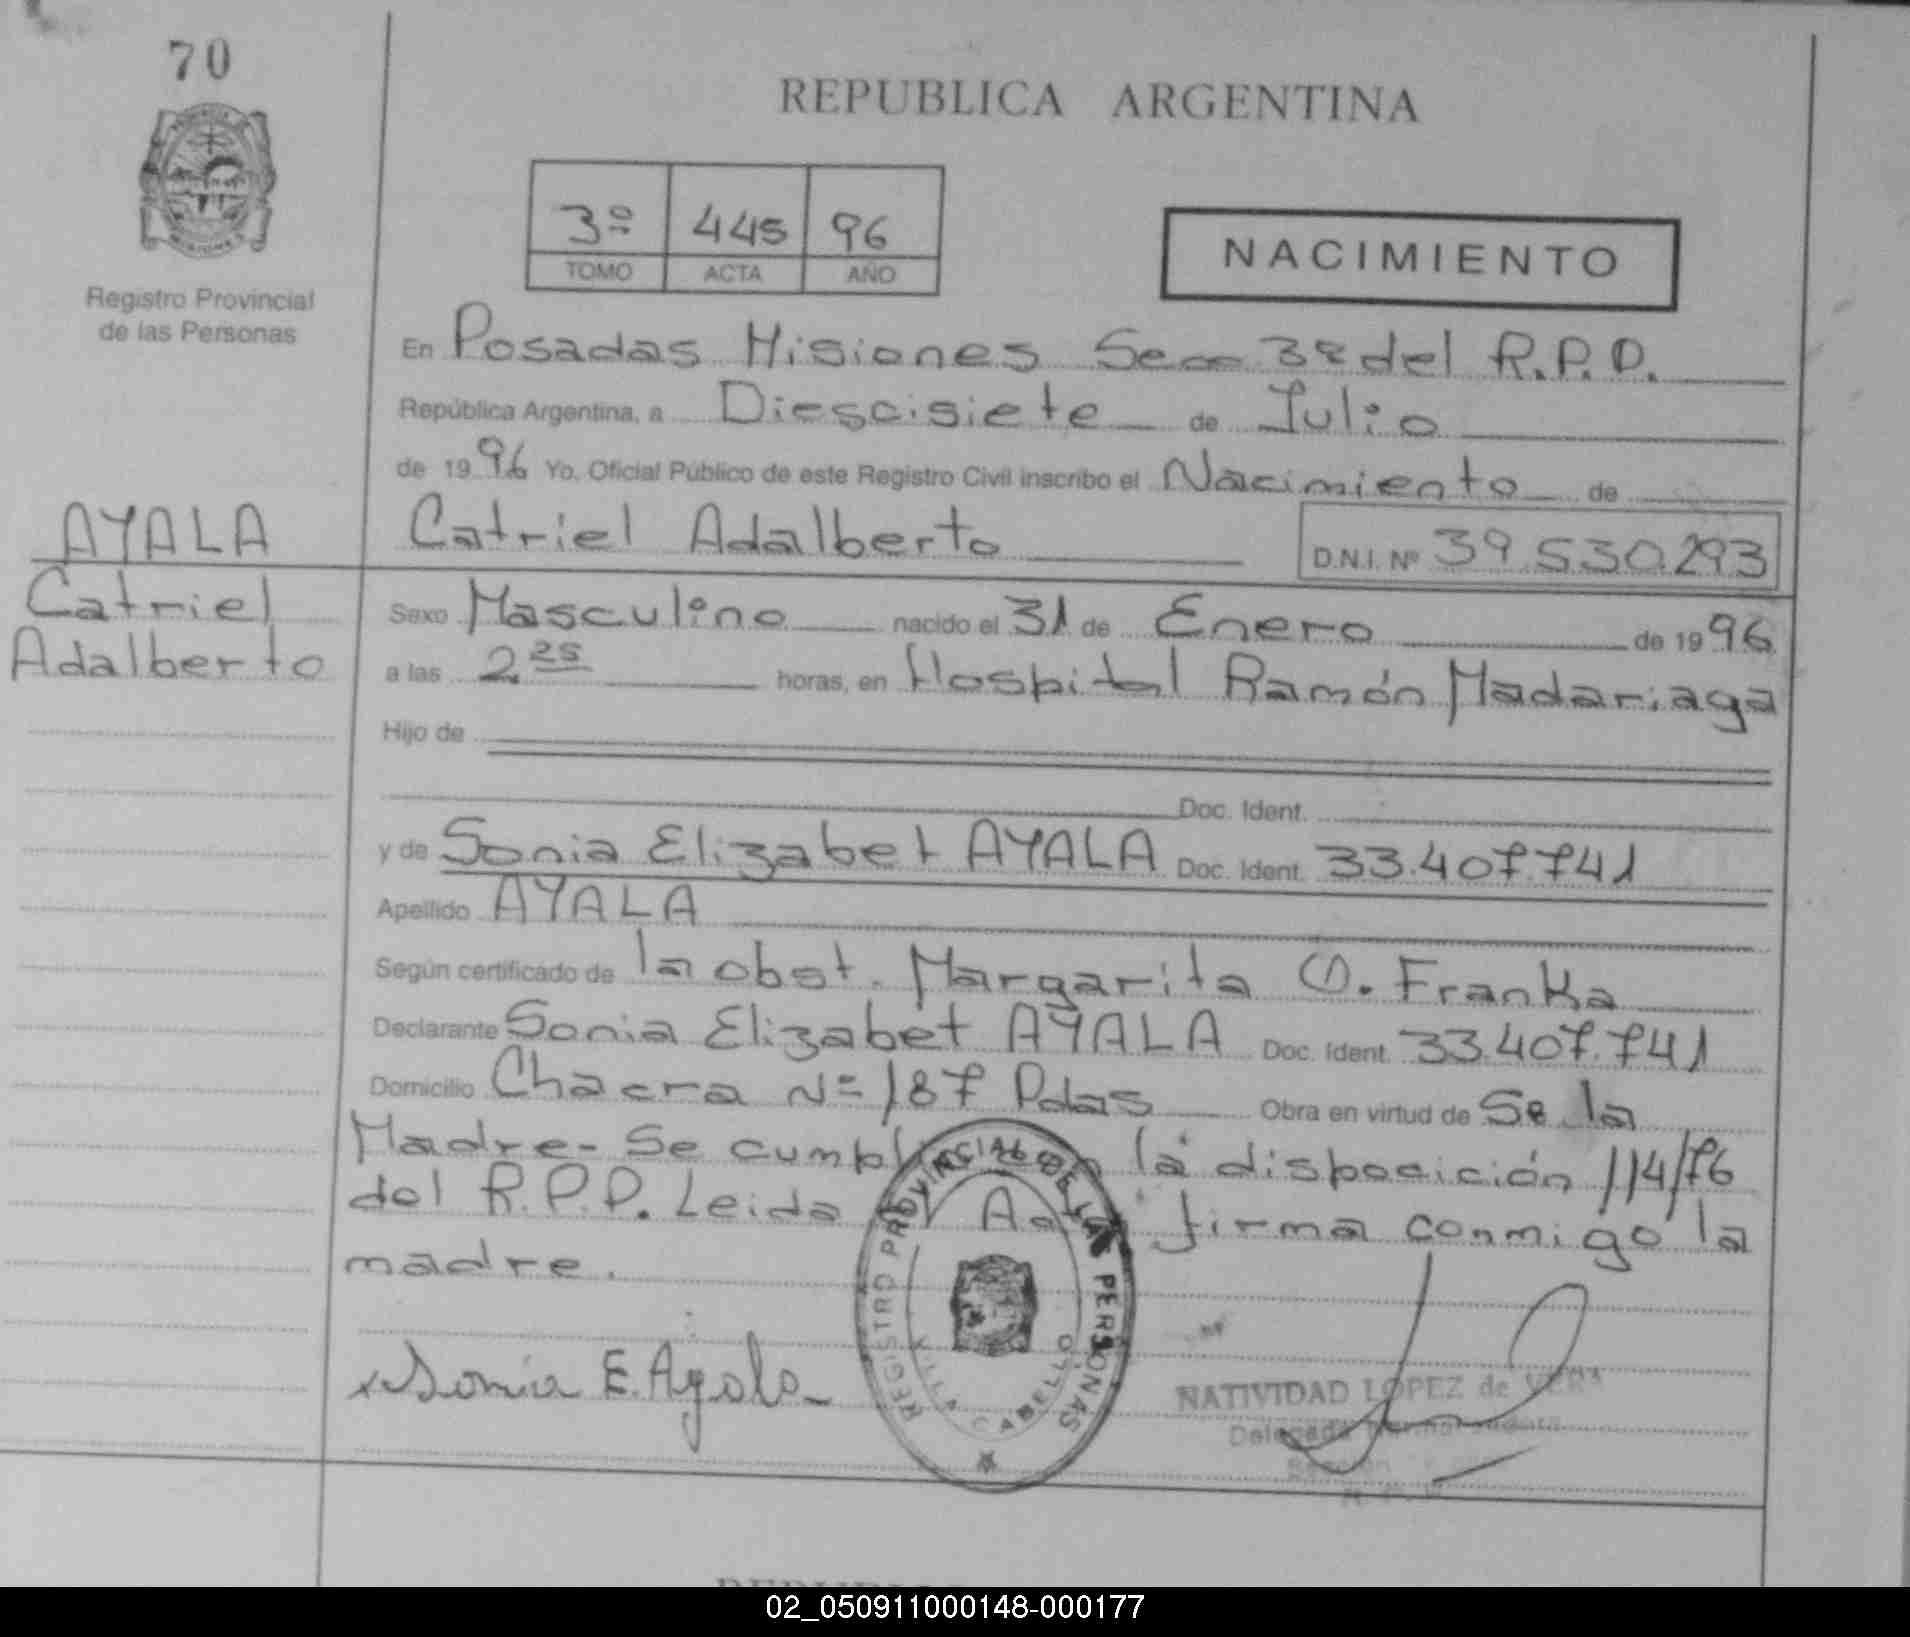 70
REPUBLICA ARGENTINA
3º 445 96
TOMO ACTA AÑO
NACIMIENTO
Registro Provincial
de las Personas
En Posadas Misiones Secc 3ª del R.P.P.
República Argentina, a Diescisiete de Julio
de 1996 Yo, Oficial Público de este Registro Civil inscribo el Nacimiento de
AYALA
Catriel Adalberto D.N.I. Nº 39.530.293
Catriel
Adalberto
Sexo Masculino nacido el 31 de Enero de 1996
a las 2 25 horas, en Hospital Ramón Madariaga
Hijo de
Doc. Ident.
y de Sonia Elizabet AYALA Doc. Ident. 33.407.741
Apellido AYALA
Según certificado de la obst. Margarita O. Franka
Declarante Sonia Elizabet AYALA Doc. Ident. 33.407.741
Domicilio Chacra Nº 187 Pdas Obra en virtud de Se la
Madre- Se cumplio con la disposición 114/76
del R.P.P. Leida el Acta firma conmigo la
madre.
Sonia E. Ayala
REGISTRO PROVINCIAL DE LAS PERSONAS
VILLA CABELLO
NATIVIDAD LOPEZ de VERA
Delegada
Sección
02_050911000148-000177